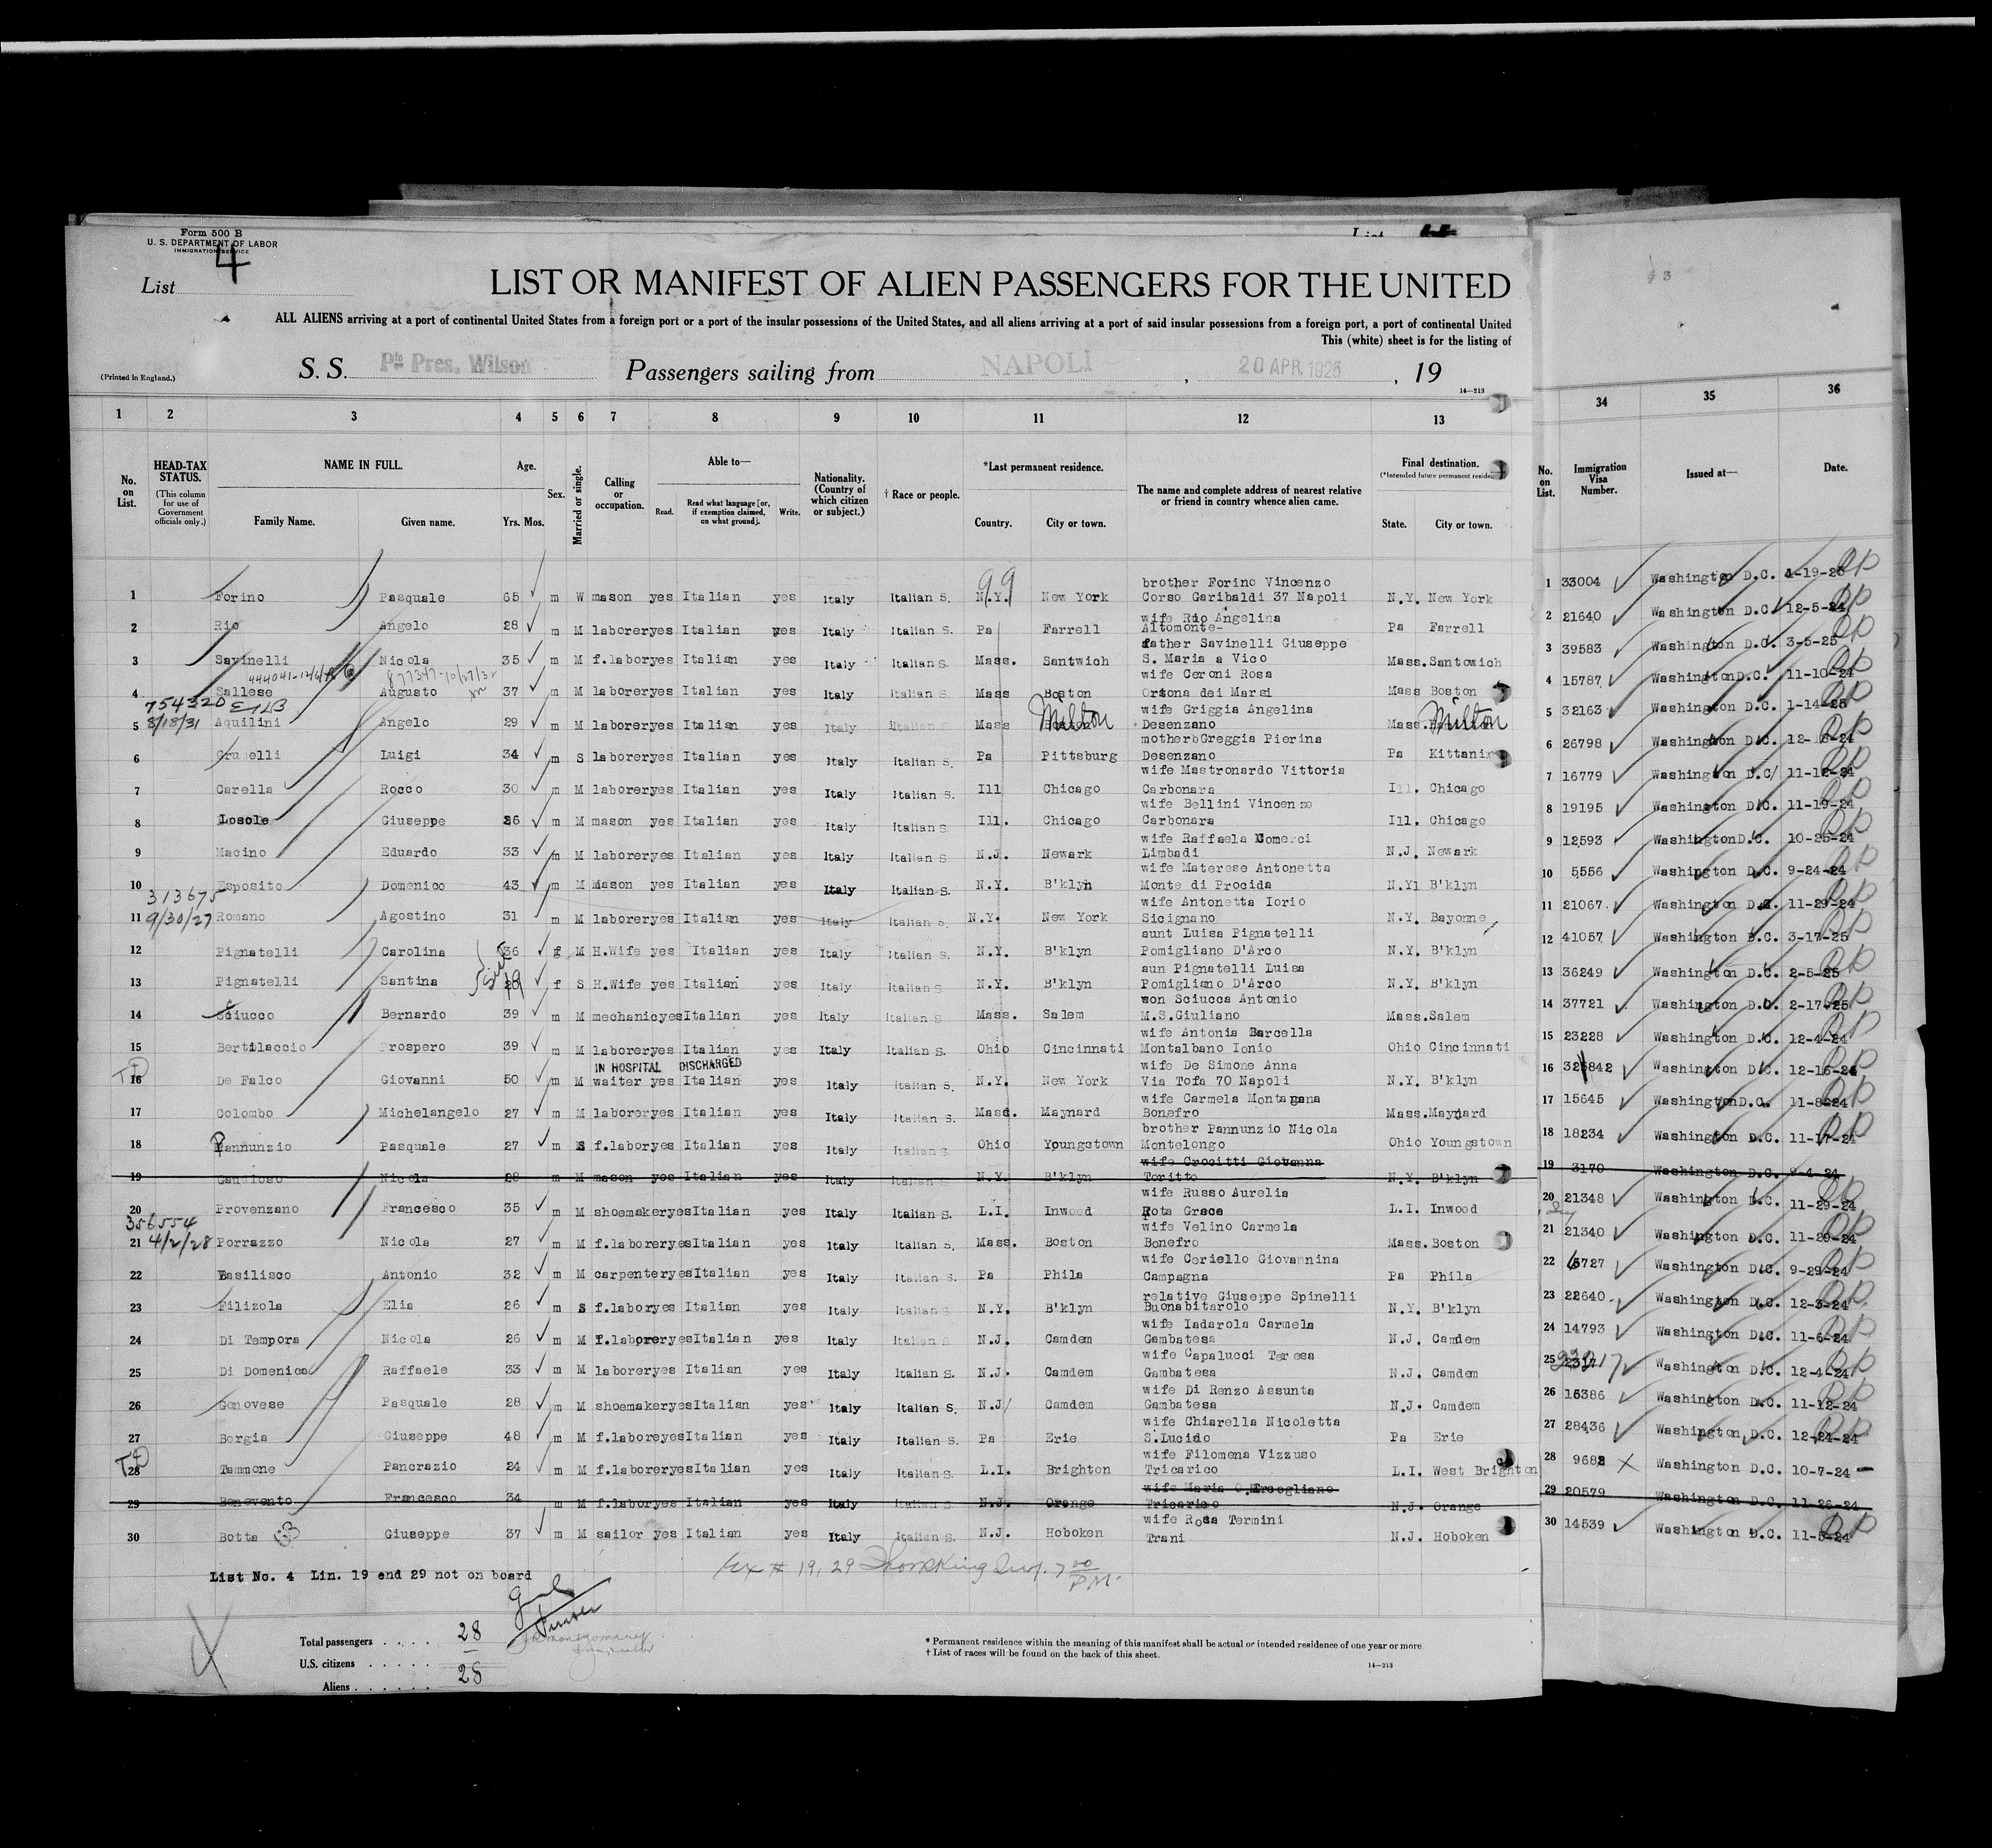 Form 500 B
U. S. DEPARTMENT OF LABOR
IMMIGRATION SERVICE
List 4
LIST OR MANIFEST OF ALIEN PASSENGERS FOR THE UNITED
ALL ALIENS arriving at a port of continental United States from a foreign port or a port of the insular possessions of the United States, and all aliens arriving at a port of said insular possessions from a foreign port, a port of continental United
This (white) sheet is for the listing of
(Printed in England.)
S. S. Pte Pres. Wilson Passengers sailing from NAPOLI, 20 APR. 1925, 19
14—213
1 2 3 4 5 6 7 8 9 10 11 12 13 34 35 36
No. on List.
HEAD-TAX STATUS.
(This column for use of Government officials only.)
NAME IN FULL.
Family Name. Given name.
Age.
Yrs. Mos.
Sex.
Married or single.
Calling or occupation.
Able to—
Read. Read what language [or, if exemption claimed, on what ground]. Write.
Nationality. (Country of which citizen or subject.)
† Race or people.
*Last permanent residence.
Country. City or town.
The name and complete address of nearest relative or friend in country whence alien came.
Final destination.
(*Intended future permanent residence)
State. City or town.
No. on List.
Immigration Visa Number.
Issued at—
Date.
99
brother Forino Vincenzo
1 Forino Pasquale 65 m W mason yes Italian yes Italy Italian S. N.Y. New York Corso Garibaldi 37 Napoli N.Y. New York 1 33004 Washington D.C. 4-19-25
wife Rio Angelina
2 Rio Angelo 28 m M laborer yes Italian yes Italy Italian S. Pa Farrell Altomonte- Pa Farrell 2 21640 Washington D.C. 12-5-24
father Savinelli Giuseppe
3 Savinelli Nicola 35 m M f.labor yes Italian yes Italy Italian S. Mass. Santwich S. Maria a Vico Mass. Santowich 3 39583 Washington D.C. 3-5-25
wife Ceroni Rosa
4 Sallese Augusto 37 m M laborer yes Italian yes Italy Italian S. Mass Boston Ortona dei Marsi Mass Boston 4 15787 Washington D.C. 11-10-24
754320
wife Griggia Angelina
5 8/18/31 Aquilini Angelo 29 m M laborer yes Italian yes Italy Italian S. Mass Milton Desenzano Mass. Milton 5 32163 Washington D.C. 1-14-25
motherbGreggia Pierina
6 Grumelli Luigi 34 m S laborer yes Italian yes Italy Italian S. Pa Pittsburg Desenzano Pa Kittanin 6 26798 Washington D.C.
wife Mastronardo Vittoria
7 Carella Rocco 30 m M laborer yes Italian yes Italy Italian S. Ill Chicago Carbonara Ill. Chicago 7 16779 Washington D.C/ 11-12-24
wife Bellini Vincenzo
8 Losole Giuseppe 26 m M mason yes Italian yes Italy Italian S Ill. Chicago Carbonara Ill. Chicago 8 19195 Washington D.C. 11-19-24
wife Raffaela Comerci
9 Macino Eduardo 33 m M laborer yes Italian yes Italy Italian S N.J. Newark Limbadi N.J. Newark 9 12593 Washington D.C. 10-25-24
wife Materese Antonetta
10 Esposito Domenico 43 m M Mason yes Italian yes Italy Italian S. N.Y. B'klyn Monte di Procida N.Y1 B'klyn 10 5556 Washington D.C. 9-24-24
313675
wife Antonetta Iorio
11 9/30/27 Romano Agostino 31 m M laborer yes Italian yes Italy Italian S N.Y. New York Sicignano N.Y. Bayonne 11 21067 Washington D.C. 11-29-24
aunt Luisa Pignatelli
12 Pignatelli Carolina 36 f M H.Wife yes Italian yes Italy Italian S. N.Y. B'klyn Pomigliano D'Arco N.Y. B'klyn 12 41057 Washington D.C. 3-17-25
aun Pignatelli Luisa
13 Pignatelli Santina f S H.Wife yes Italian yes Italy Italian S N.Y. B'klyn Pomigliano D'Arco N.Y. B'klyn 13 36249 Washington D.C. 2-5-25
won Sciucca Antonio
14 Sciucco Bernardo 39 m M mechanic yes Italian yes Italy Italian S Mass. Salem M.S.Giuliano Mass. Salem 14 37721 Washington D.C. 2-17-25
wife Antonia Barcella
15 Bertilaccio Prospero 39 m M laborer yes Italian yes Italy Italian S. Ohio Cincinnati Montalbano Ionio Ohio Cincinnati 15 23228 Washington D.C. 12-4-24
IN HOSPITAL DISCHARGED
wife De Simone Anna
16 De Falco Giovanni 50 m M waiter yes Italian yes Italy Italian S. N.Y. New York Via Tofa 70 Napoli N.Y. B'klyn 16 Washington D.C. 12-16-24
wife Carmela Montagana
17 Colombo Michelangelo 27 m M laborer yes Italian yes Italy Italian S. Mass. Maynard Bonefro Mass. Maynard 17 15645 Washington D.C.
brother Pannunzio Nicola
18 Pannunzio Pasquale 27 m S f.labor yes Italian yes Italy Italian S. Ohio Youngstown Montelongo Ohio Youngstown 18 18234 Washington D.C. 11-17-24
wife Crocitti Giovanna
19 Gaudioso Nicola 28 m M mason yes Italian yes Italy Italian S N.Y. B'klyn Toritto N.Y. B'klyn 19 3170 Washington D.C. 9-4-24
wife Russo Aurelia
20 Provenzano Francesco 35 m M shoemaker yes Italian yes Italy Italian S. L.I. Inwood Rota Graca L.I. Inwood 20 21348 Washington D.C. 11-29-24
356554
wife Velino Carmela
21 4/2/28 Porrazzo Nicola 27 m M f.laborer yes Italian yes Italy Italian S. Mass. Boston Bonefro Mass. Boston 21 21340 Washington D.C. 11-29-24
wife Ceriello Giovannina
22 Basilisco Antonio 32 m M carpenter yes Italian yes Italy Italian S. Pa Phila Campagna Pa Phila 22 6727 Washington D.C. 9-29-24
relative Giuseppe Spinelli
23 Filizola Elia 26 m S f.labor yes Italian yes Italy Italian S N.Y. B'klyn Buonabitarolo N.Y. B'klyn 23 22640 Washington D.C. 12-3-24
wife Iadarola Carmela
24 Di Tempora Nicola 26 m M f.laborer yes Italian yes Italy Italian S N.J. Camdem Gambatesa N.J. Camdem 24 14793 Washington D.C. 11-6-24
wife Capalucci Teresa
25 Di Domenica Raffaele 33 m M laborer yes Italian yes Italy Italian S. N.J. Camdem Gambatesa N.J. Camdem 25 Washington D.C. 12-4-24
wife Di Renzo Assunta
26 Genovese Pasquale 28 m M shoemaker yes Italian yes Italy Italian S. N.J/ Camdem Gambatesa N.J. Camdem 26 16386 Washington D.C. 11-12-24
wife Chiarella Nicoletta
27 Borgia Giuseppe 48 m M f.labore yes Italian yes Italy Italian S. Pa Erie S.Lucido Pa Erie 27 28436 Washington D.C. 12-24-24
wife Filomena Vizzuso
28 Tammone Pancrazio 24 m M f.laborer yes Italian yes Italy Italian S. L.I. Brighton Tricarico L.I. West Brighton 28 9682 Washington D.C. 10-7-24
wife Maria O.Ercogliano
29 Benevento Francesco 34 m M f.labor yes Italian yes Italy Italian S N.J. Orange Tricarico N.J. Orange 29 20579 Washington D.C. 11-26-24
wife Rosa Termini
30 Botta Giuseppe 37 m M sailor yes Italian yes Italy Italian S. N.J. Hoboken Trani N.J. Hoboken 30 14539 Washington D.C. 11-5-24
List No. 4 Lin. 19 end 29 not on board
Total passengers . . . . 28
U.S. citizens . . . . .
Aliens . . . . . . 28
* Permanent residence within the meaning of this manifest shall be actual or intended residence of one year or more.
† List of races will be found on the back of this sheet.
14—213